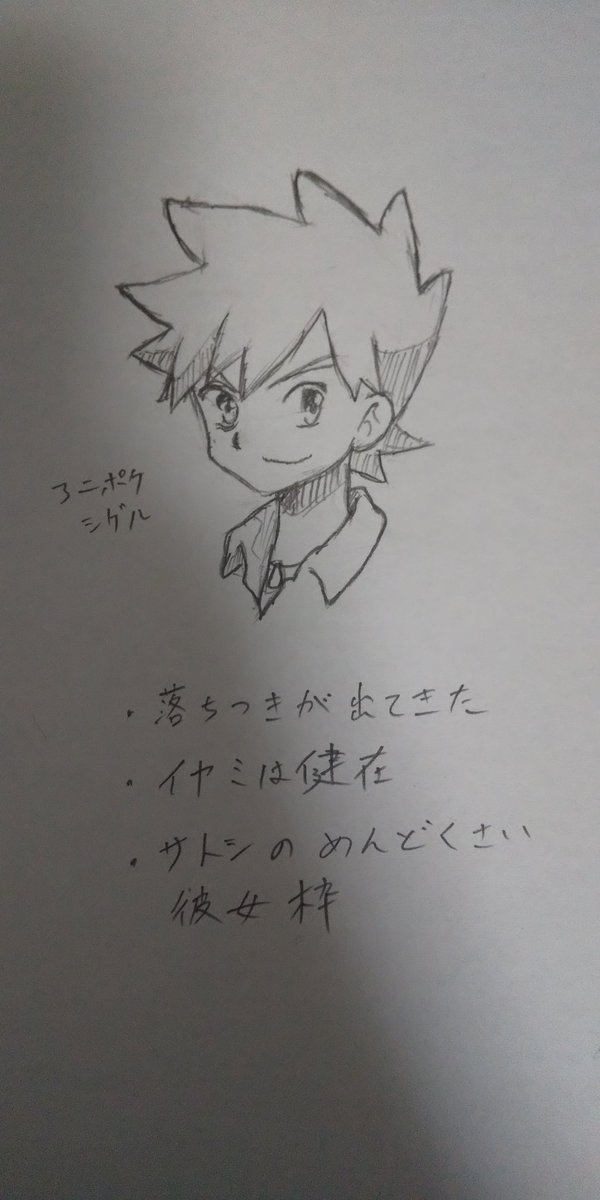 アニポケ
シゲル
・落ちつきが出てきた
・イヤミは健在
・サトシのめんどくさい
彼女枠